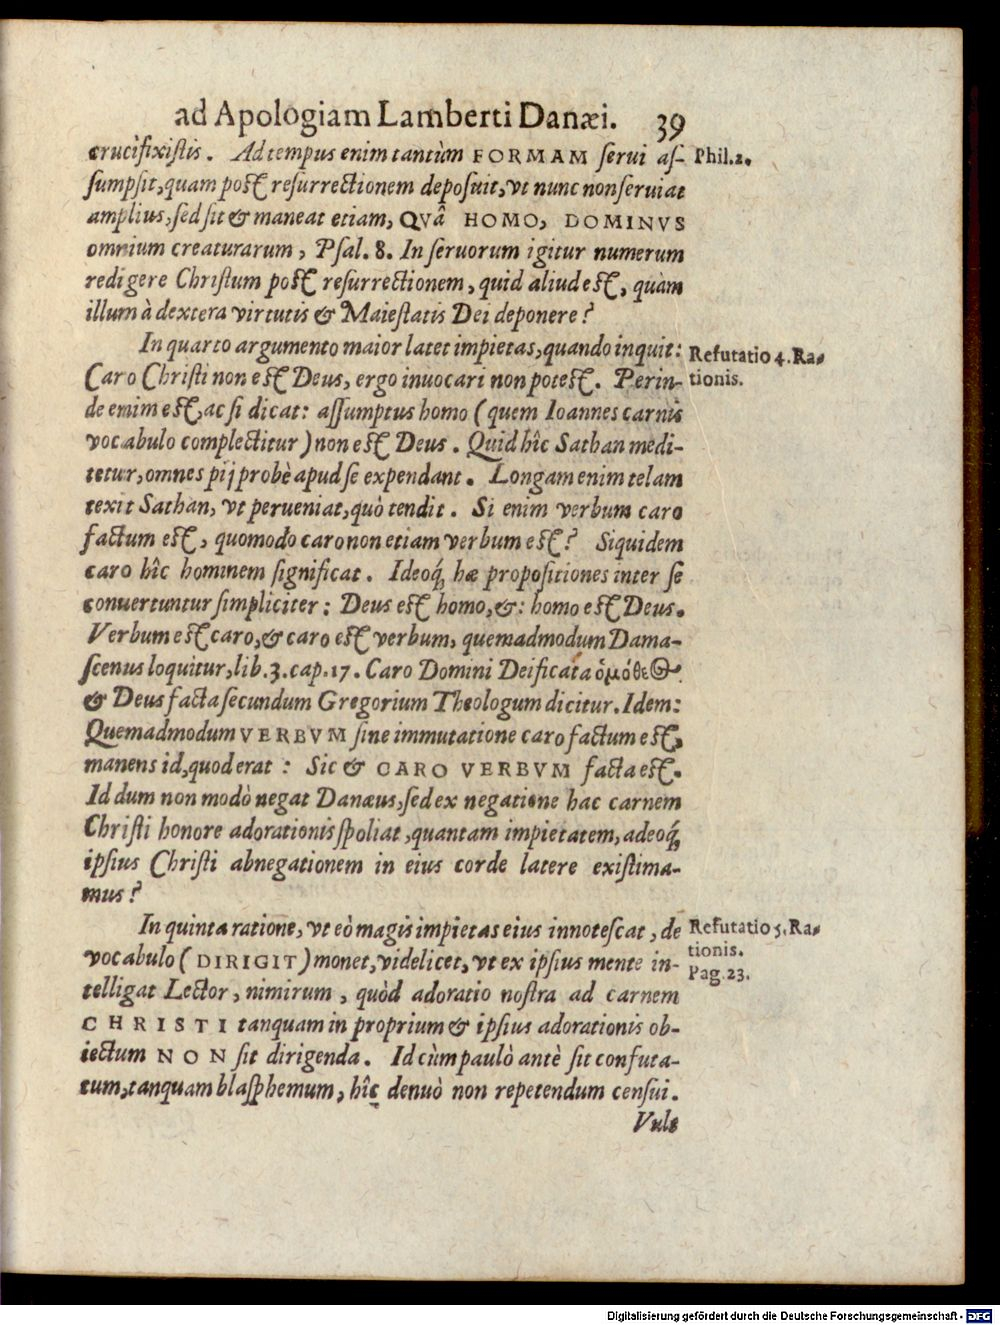 ad Apologiam Lamberti Danæi. 39
crucifixiſtis. Ad tempus enim tantùm FORMAM ſerui aſ- Phil.2.
ſumpſit, quam poſt reſurrectionem depoſuit, vt nunc non ſeruiat
amplius, ſed ſit & maneat etiam, QVÂ HOMO, DOMINVS
omnium creaturarum, Pſal. 8. In ſeruorum igitur numerum
redigere Chriſtum poſt reſurrectionem, quid aliud eſt, quàm
illum à dextera virtutis & Maieſtatis Dei deponere?
In quarto argumento maior latet impietas, quando inquit: Refutatio 4. Ra-
Caro Chriſti non eſt Deus, ergo inuocari non poteſt. Perin- tionis.
de enim eſt, ac ſi dicat: aſſumptus homo (quem Ioannes carnis
vocabulo complectitur) non eſt Deus. Quid hîc Sathan medi-
tetur, omnes pij probè apud ſe expendant. Longam enim telam
texit Sathan, vt perueniat, quò tendit. Si enim verbum caro
factum eſt, quomodo caro non etiam verbum eſt? Siquidem
caro hîc hominem ſignificat. Ideoq́ hæ propoſitiones inter ſe
conuertuntur ſimpliciter: Deus eſt homo, &: homo eſt Deus.
Verbum eſt caro, & caro eſt verbum, quemadmodum Dama-
ſcenus loquitur, lib. 3. cap. 17. Caro Domini Deificata ὁμόθεος
& Deus facta ſecundum Gregorium Theologum dicitur. Idem:
Quemadmodum VERBVM ſine immutatione caro factum eſt,
manens id, quod erat: Sic & CARO VERBVM facta eſt.
Id dum non modò negat Danæus, ſed ex negatione hac carnem
Chriſti honore adorationis ſpoliat, quantam impietatem, adeoq́,
ipſius Chriſti abnegationem in eius corde latere exiſtima-
mus?
In quinta ratione, vt eò magis impietas eius innoteſcat, de Refutatio 5. Ra-
vocabulo (DIRIGIT) monet, videlicet, vt ex ipſius mente in- tionis.
telligat Lector, nimirum, quòd adoratio noſtra ad carnem Pag. 23.
CHRISTI tanquam in proprium & ipſius adorationis ob-
iectum NON ſit dirigenda. Id cùm paulò antè ſit confuta-
tum, tanquam blaſphemum, hîc denuò non repetendum cenſui.
Vult
Digitalisierung gefördert durch die Deutsche Forschungsgemeinschaft - DFG